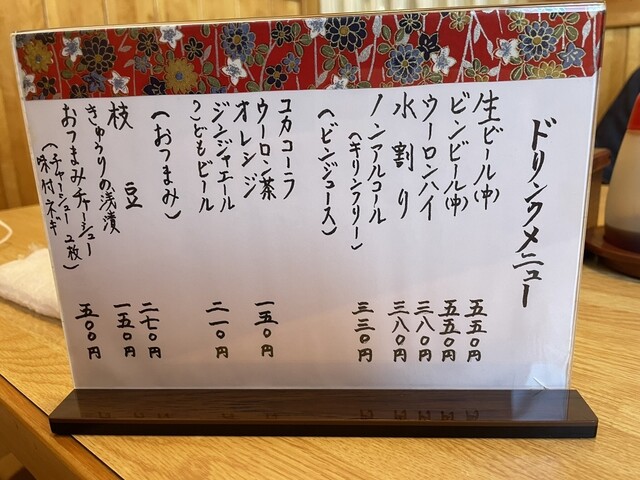 ドリンクメニュー
生ビール(中) 五五〇円
ビンビール(中) 五五〇円
ウーロンハイ 三八〇円
水割り 三八〇円
ノンアルコール 三三〇円
(キリンフリー)
(ビンジュース)
コカコーラ
ウーロン茶 一五〇円
オレンジ
ジンジャエール
こどもビール 二一〇円
(おつまみ)
枝豆 二七〇円
きゅうりの浅漬 一五〇円
おつまみチャーシュー 五〇〇円
(チャーシュー2枚)
味付ネギ